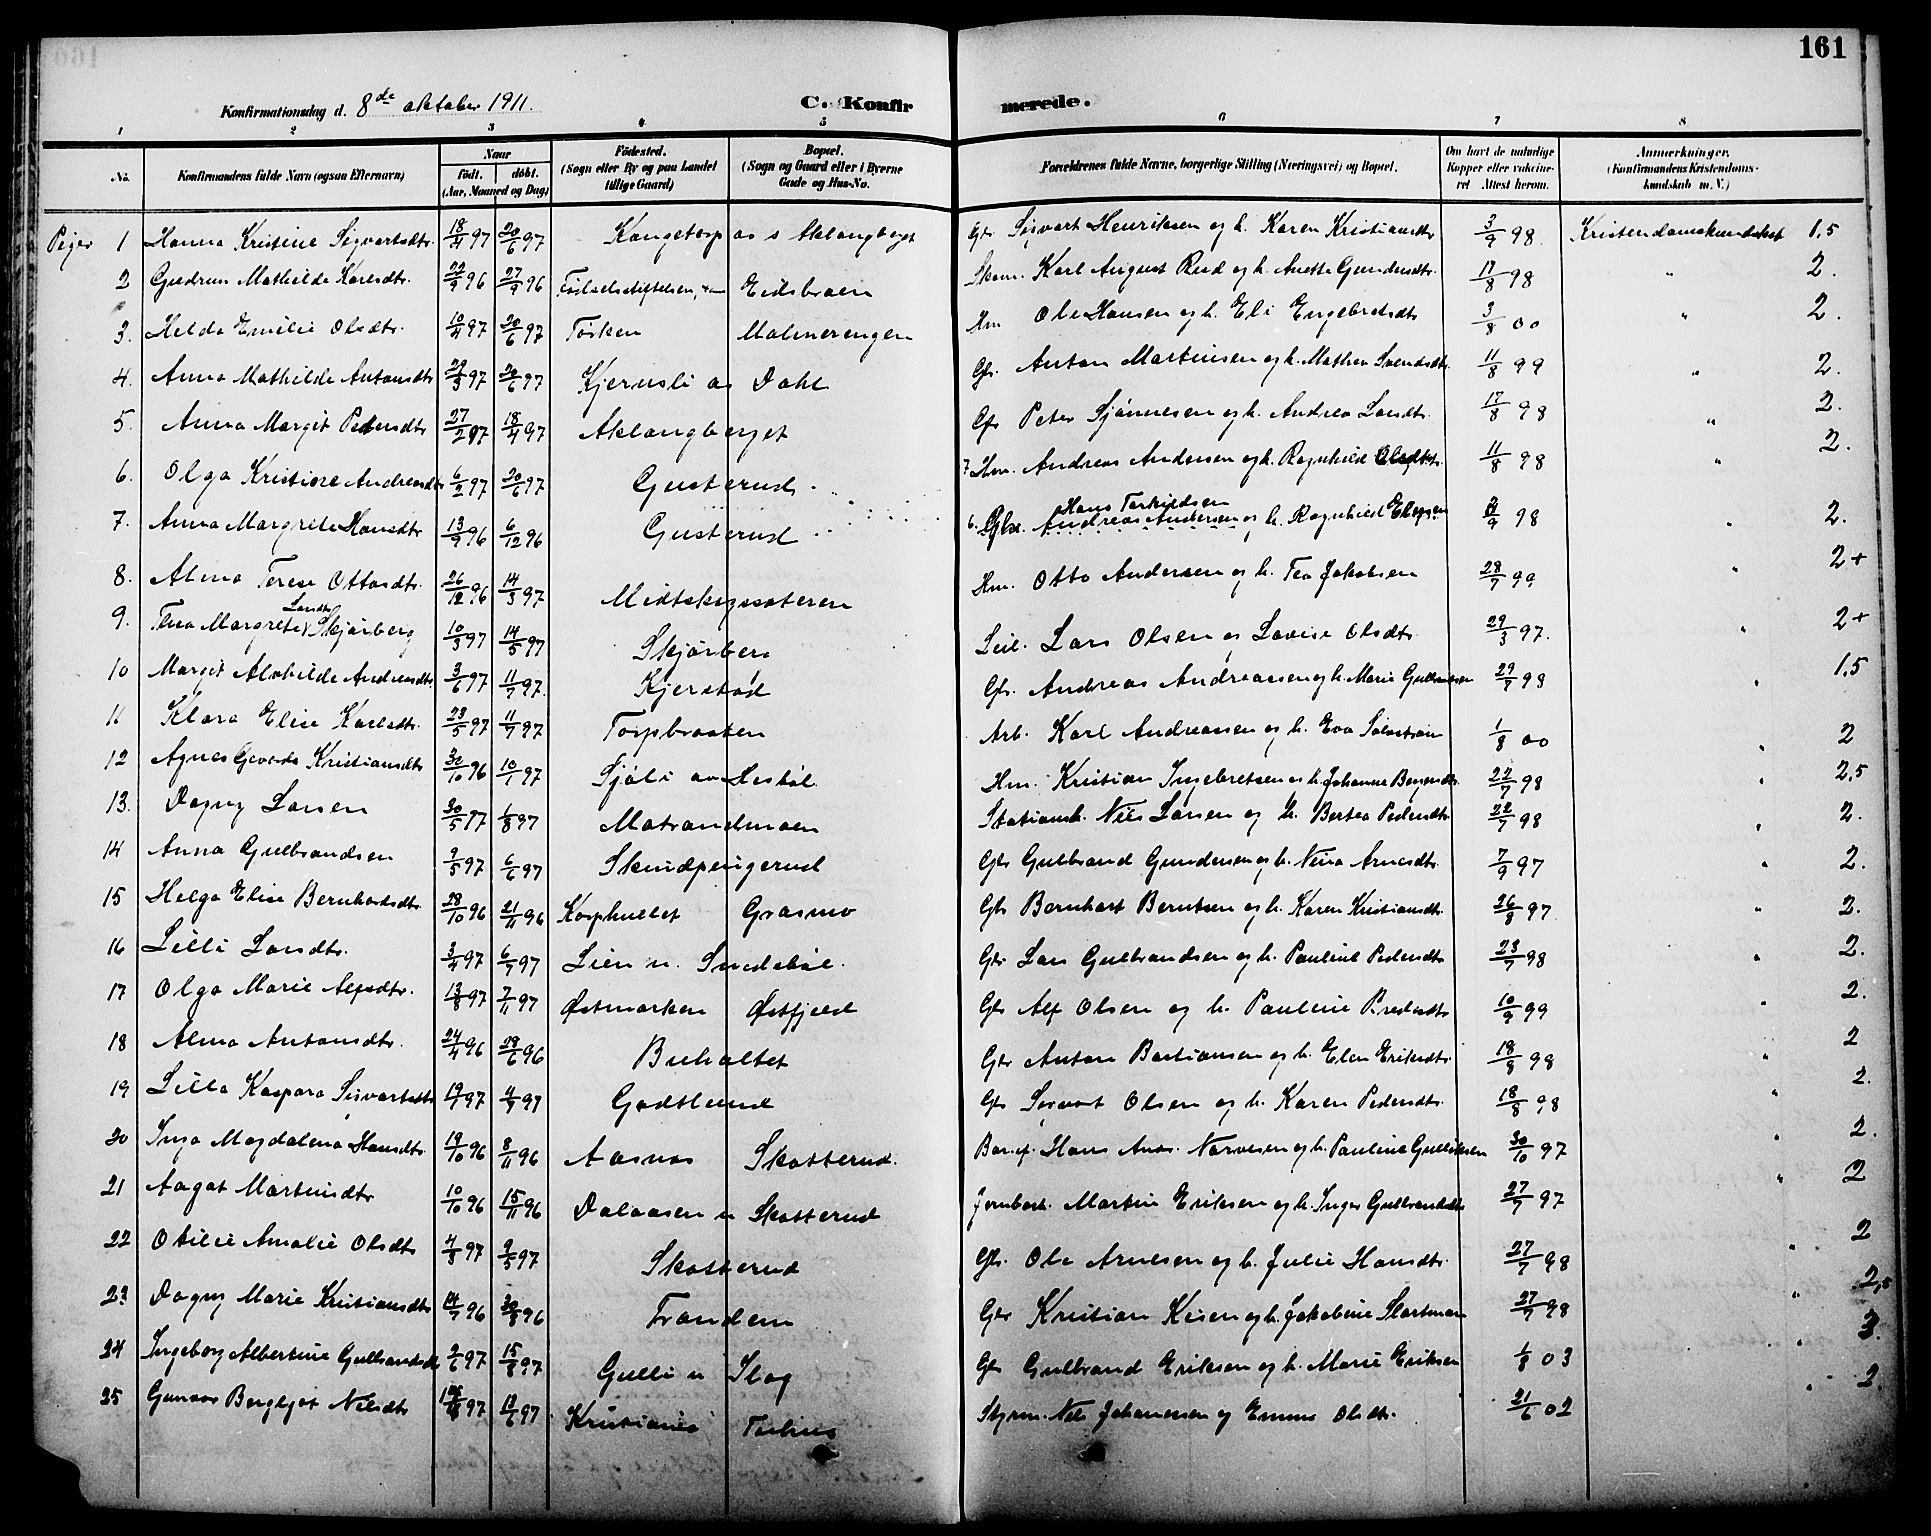 161
Konfirmationsdag d. 8de oktober 1911.
C. Konfirmerede.
1 2 3 4 5 6 7 8
No. Konfirmandens fulde Navn (ogsaa Efternavn) Naar født. døbt. (Aar, Maaned og Dag) Fødested. (Sogn eller By og paa Landet tillige Gaard) Bopæl. (Sogn og Gaard eller i Byerne Gade og Hus-No. Forældrenes fulde Navne, borgerlige Stilling (Næringsvei) og Bopæl. Om havt de naturlige Kopper eller vaccineret Attest herom. Anmærkninger. (Konfirmandens Kristendomskundskab m. V.)
Piger 1 Hanna Kristine Sigvartsdtr. 18/4 97 20/6 97 Kongetorp as s Aklangberget Gbr Sigvart Henriksen og h. Karen Kristiansdtr 3/9 98 Kristendomskundskab 1,5
2 Gudrun Mathilde Karlsdtr. 22/9 96 27/9 96 Fødselsstiftelsen, Eidsbraen Karl August Rud og h. Anette Gundersdtr. 17/8 98 " 2.
3. Helda Emilie Olsdtr. 10/4 97 20/6 97 Tøsken Malmerengen Hm Ole Hansen og h. Eli Engebretsdtr 3/8 00 " 2.
4. Anna Mathilde Antonsdtr 29/3 97 20/6 97 Kjernsli as Dahl Gbr. Anton Martinsen og h. Mathea Svendsdtr. 11/8 99 " 2.
5. Anna Margit Pedersdtr 27/2 97 18/4 97 Aklangberget Peter Sjønnesen og h. Andrea Larsdtr. 17/8 98 " 2.
6. Olga Kristine Andreasdtr 6/2 97 20/6 97 Gusterud 7 Hm. Andreas Andersen og h. Ragnhild Olsdtr. 11/8 98 " 2.
7. Anna Margrete Hansdtr 13/9 96 6/12 96 Gusterud 6. Gbr. Hans Torkildsen Andreas Andersen og h. Ragnhild /9 98 " 2.
8. Alma Terese Ottosdtr. 26/12 96 14/3 97 Midtskogssæteren Hm. Otto Andersen og h. Tea Jakobsen 28/7 99 " 2+
9. Thea Margrete Larsdtr Skjørberg 10/3 97 14/5 97 Skjørberg Lars Olsen og Lovise Olsdtr. 29/3 97. " 2+
10 Margit Alvhilde Andreasdtr. 3/6 97 11/7 97. Kjerstad Gbr. Andreas Andreassen og h. Marie Gulbrandsen 29/7 98 " 1,5
11 Klara Elise Karlsdtr. 23/5 97 11/7 97 Torpbraaten Arb. Karl Andreassen og h. Eva 1/8 00 " 2
12 Agnes Gevarda Kristiansdtr 30/10 96 10/1 97 Sjøli av Hesbøl Hm. Kristian Ingebretsen og h. Johanne 22/7 98 " 2,5
13. Dagny Larsen 30/5 97 1/8 97 Matrandmoen Nils Larsen og h. Bertea Pedersdtr 22/7 98 " 2.
14 Anna Gulbrandsen 9/5 97 6/6 97 Skindpengerud Gbr Gulbrand Gundersen og h. Arnesdtr. 7/9 97 " 2.
15 Helga Elise Bernhardsdtr. 28/10 96 21/11 96 Korphullet Grasmo Gbr Bernhart Berntsen og h. Karen Kristiansdtr. 26/8 97. " 2.
16 Lilli Larsdtr. 3/4 97 6/7 97 Lien u. Snedsbøl. Gbr Lars Gulbrandsen og h. Pauline Pedersdtr 23/7 98 " 2.
17 Olga Marie Alfsdtr. 13/8 97 7/11 97 Østmarken Østfjeld Gbr Alf Olsen og h. Pauline 10/9 99 " 2.
18 Alma Antonsdtr. 24/4 96 28/6 96 Buholtet Gbr Anton Bastiansen og h. Elen Eriksdtr. 18/8 98 " 2
19 Lilla Kaspara Sigvartsdtr 19/ 97 4/7 97 Godtlund Gbr Sigvart Olsen og h. Karen Pedersdtr. 18/8 98 " 2.
20 Inga Magdalena Hansdtr. 19/10 96 8/11 96 Aasnæs Skotterud. Hans Narvesen og h. Pauline Gulliksen 30/10 97 " 2.
21 Aagot Martinsdtr 10/10 96 15/11 96 Dalaasen u Skotterud Martin Eriksen og h. Inger Gulbrandsdtr 27/7 97 " 2
22 Otilie Amalie Olsdtr 4/3 97 9/5 97 Skotterud Gbr. Ole Arnesen og h. Julie Hansdtr. 27/7 98 " 2
23 Dagny Marie Kristiansdtr 14/7 96 30/8 96 Trandem Gbr Kristian og h. Jakobine 27/7 98 " 2,5
24 Ingeborg Albertine Gulbrandsdtr 2/6 97 15/8 97 Gulli u Skog Gbr Gulbrand Eriksen og h. Marie Eriksen 1/8 03 " 3.
25 Gunvor Bergljot Nilsdtr 97 12/6 97. Kristiania Styrm. Nils Johannesen og Emma Olsdtr. 21/6 02 " 2.